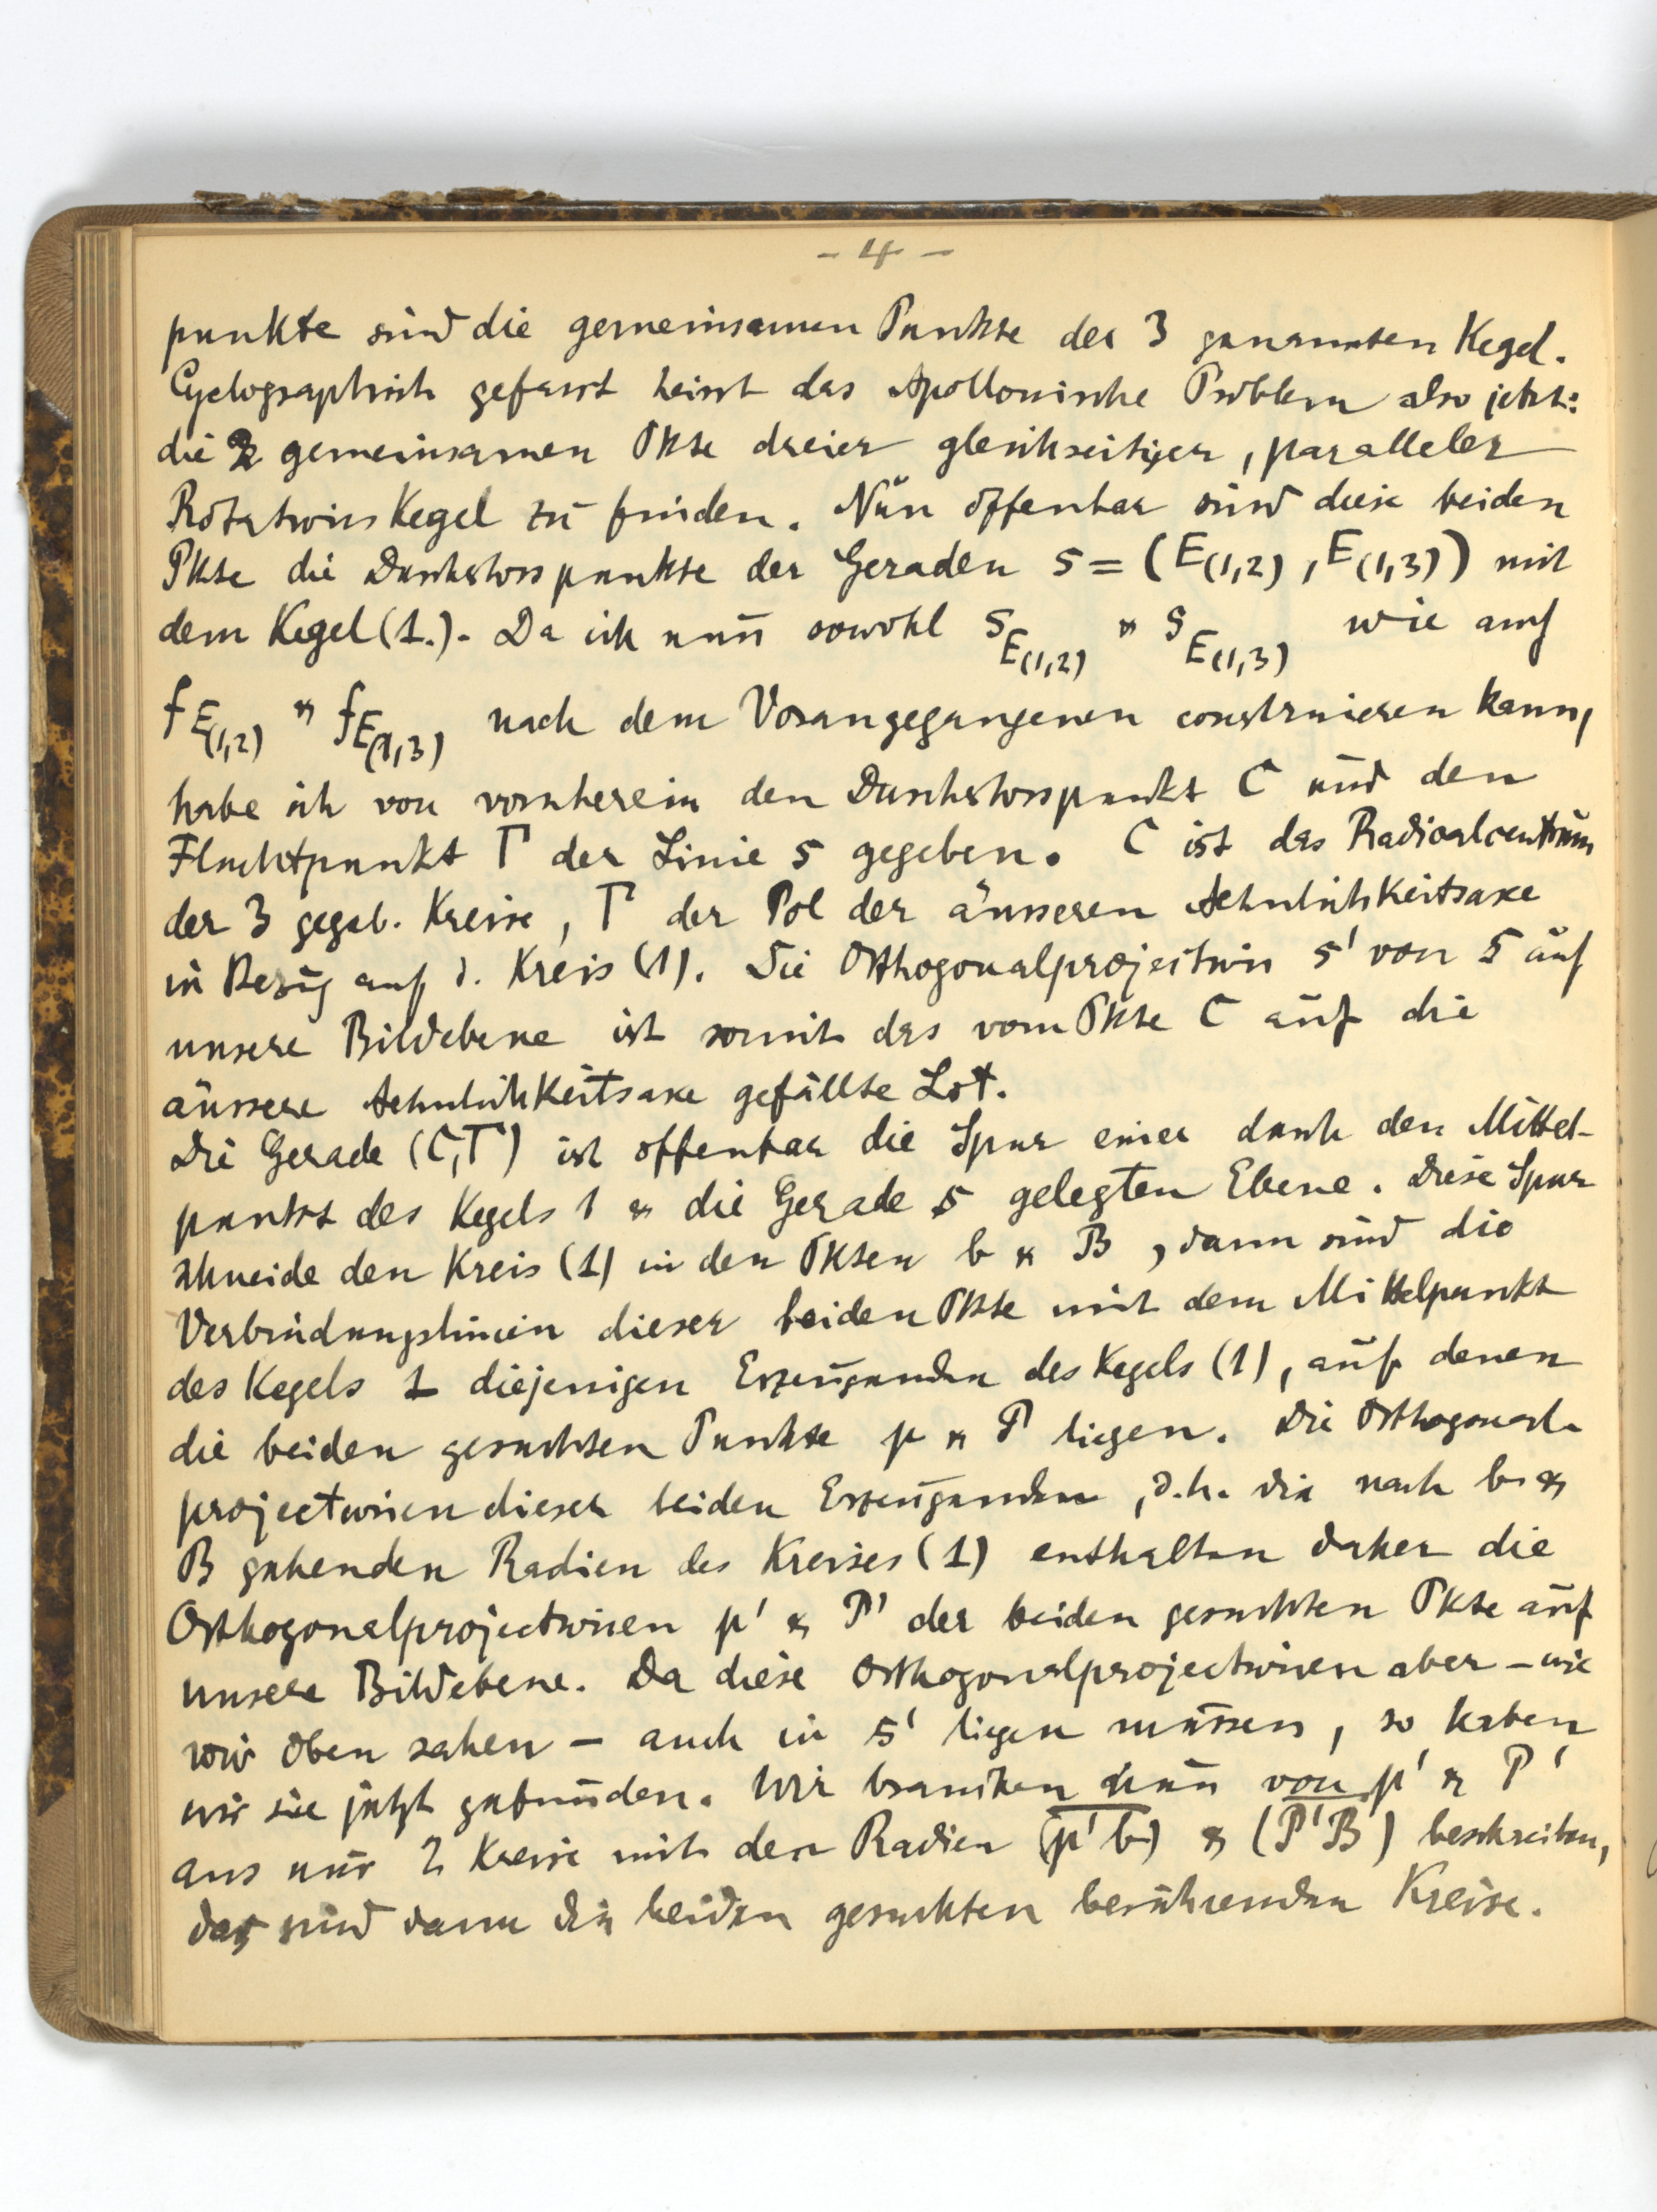 - 4 -
punkte sind die gemeinsamen Punkte der 3 genannten Kegel.
Cyclographisch gefasst heisst das Apollonische Problem also jetzt:
die 2 gemeinsamen Pkte dreier gleichseitiger, paralleler
Rotations Kegel zu finden. Nun offenbar sind diese beiden
Pkte die Durchstosspunkte der Geraden s = (E(1,2), E(1,3)) mit
dem Kegel (1.). Da ich nun sowohl s_E(1,2) & s_E(1,3) wie auch
f_E(1,2) & f_E(1,3) nach dem Vorangegangenen construieren kann,
habe ich von vorneherein den Durchstosspunkt C und den
Fluchtpunkt Γ der Linie s gegeben. C ist das Radicalcentrum
der 3 gegeb. Kreise, Γ der Pol der äusseren Aehnlichkeitsaxe
in Bezug auf d. Kreis (1). Die Orthogonalprojection s' von s auf
unsere Bildebene ist somit das vom Pkte C auf die
äussere Aehnlichkeitsaxe gefällte Lot.
Die Gerade (C,Γ) ist offenbar die Spur einer durch den Mittel-
punkt des Kegels 1 & die Gerade s gelegten Ebene. Diese Spur
schneide den Kreis (1) in den Pkten b & B, dann sind die
Verbindungslinien dieser beiden Pkte mit dem Mittelpunkt
des Kegels 1 diejenigen Erzeugenden des Kegels (1), auf denen
die beiden gesuchten Punkte p & P liegen. Die Orthogonal-
projectionen dieser beiden Erzeugenden, d.h. die nach b &
B gehenden Radien des Kreises (1) enthalten daher die
Orthogonalprojectionen p' & P' der beiden gesuchten Pkte auf
unsere Bildebene. Da diese Orthogonalprojectionen aber – wie
wir oben sahen – auch in s' liegen müssen, so haben
wir sie jetzt gefunden. Wir brauchen nun von p' & P'
aus nur 2 Kreise mit den Radien (p'b) & (P'B) beschreiben,
das sind dann die beiden gesuchten berührenden Kreise.